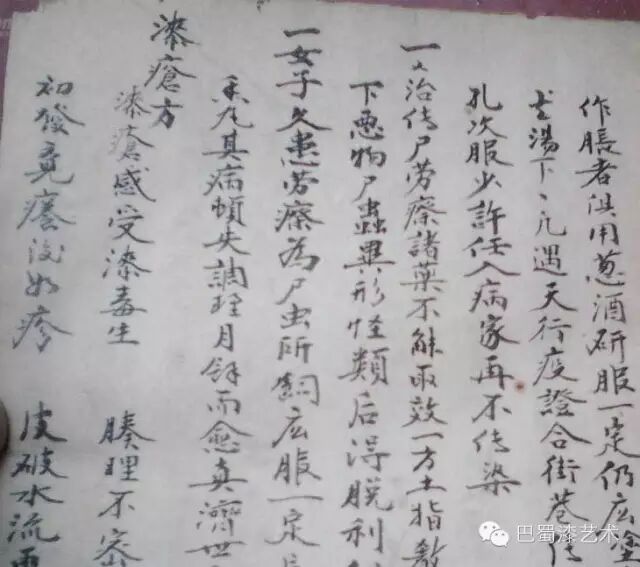 作脹者俱用葱酒研服一定仍広塗
湯下丶凡遇天行疫證合街巷传
孔次服少許任入病家再不传染
一又治传尸劳瘵諸薬不能取效一方士指教
下恶物尸蟲異形怪類后得脱利
一女子久患劳瘵為尸虫所飼広服一定
其病頓失調理月餘而愈真濟世
漆瘡方
漆瘡感受漆毒生 腠理不密
初發覓癢後如疹 皮破水流
巴蜀漆艺术